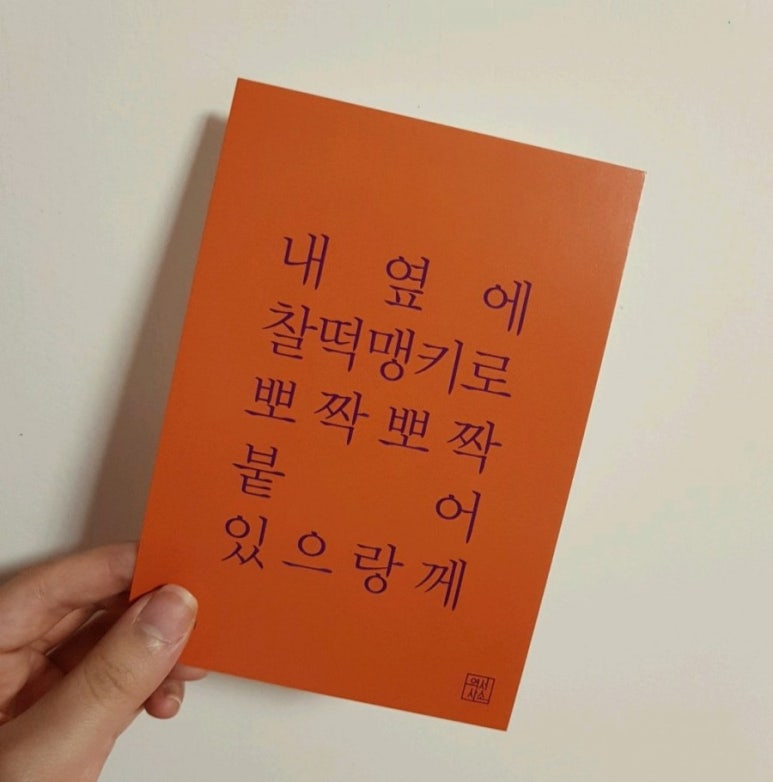 내 옆 에
찰떡맹키로
뽀 짝 뽀 짝
붙 어
있 으 랑 께
역서
사소